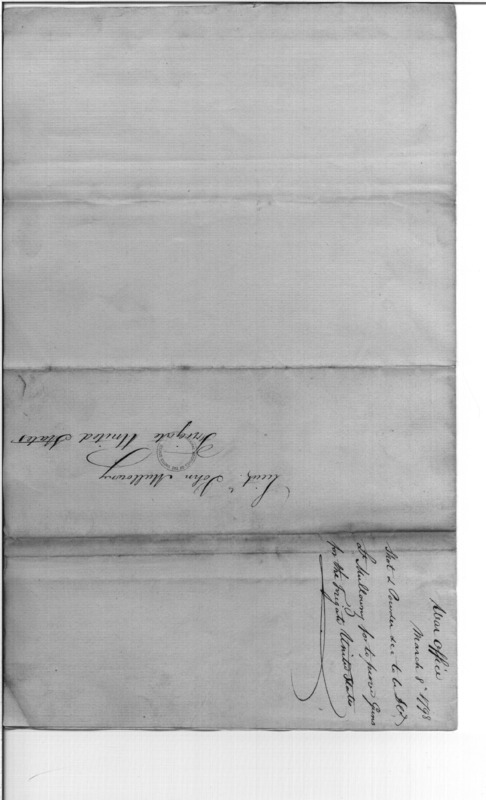 Lieut. John Mullowny
Frigate United States
War Office
March 8th 1798
Shot & Powder &c to be del'd
Lt Mullowny for to prove Guns
for the Frigate United States